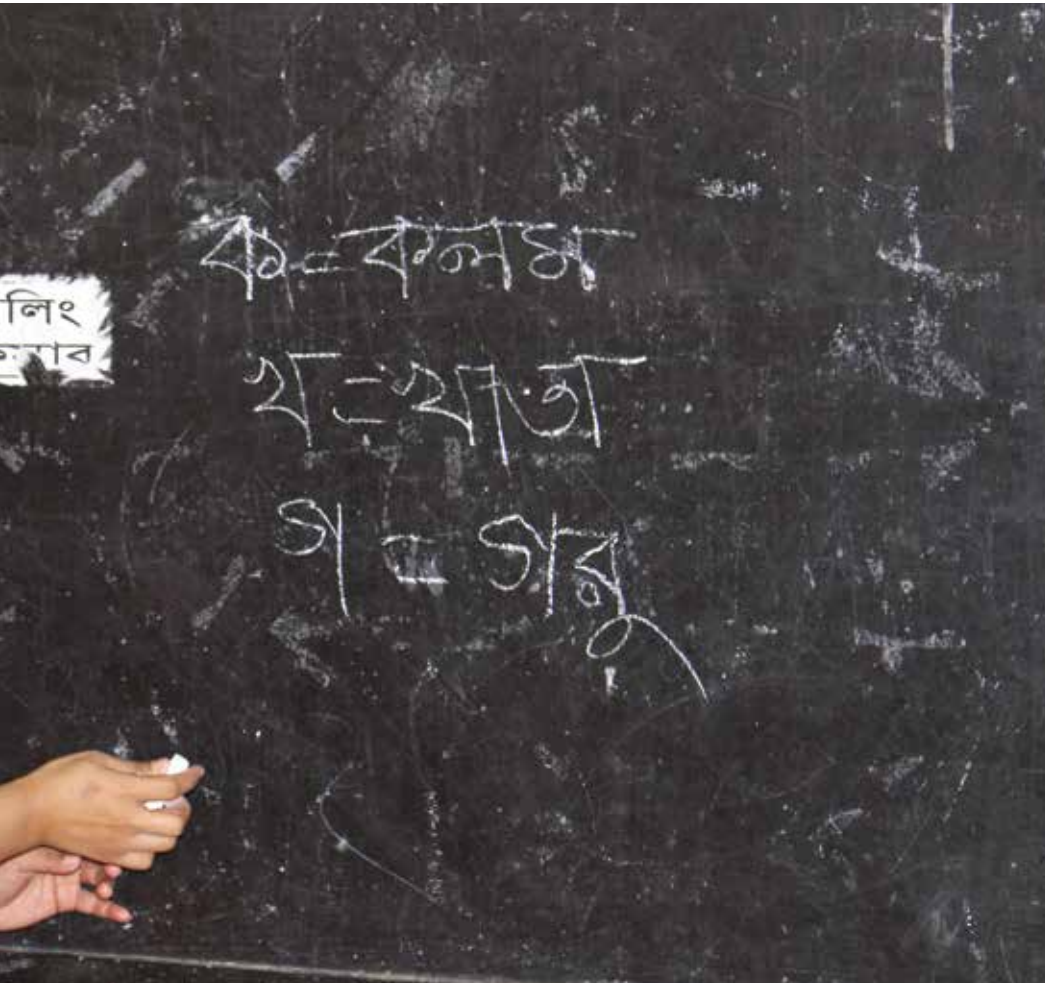 ক = কলম
লিং
খ = খাতা
গ = গরু